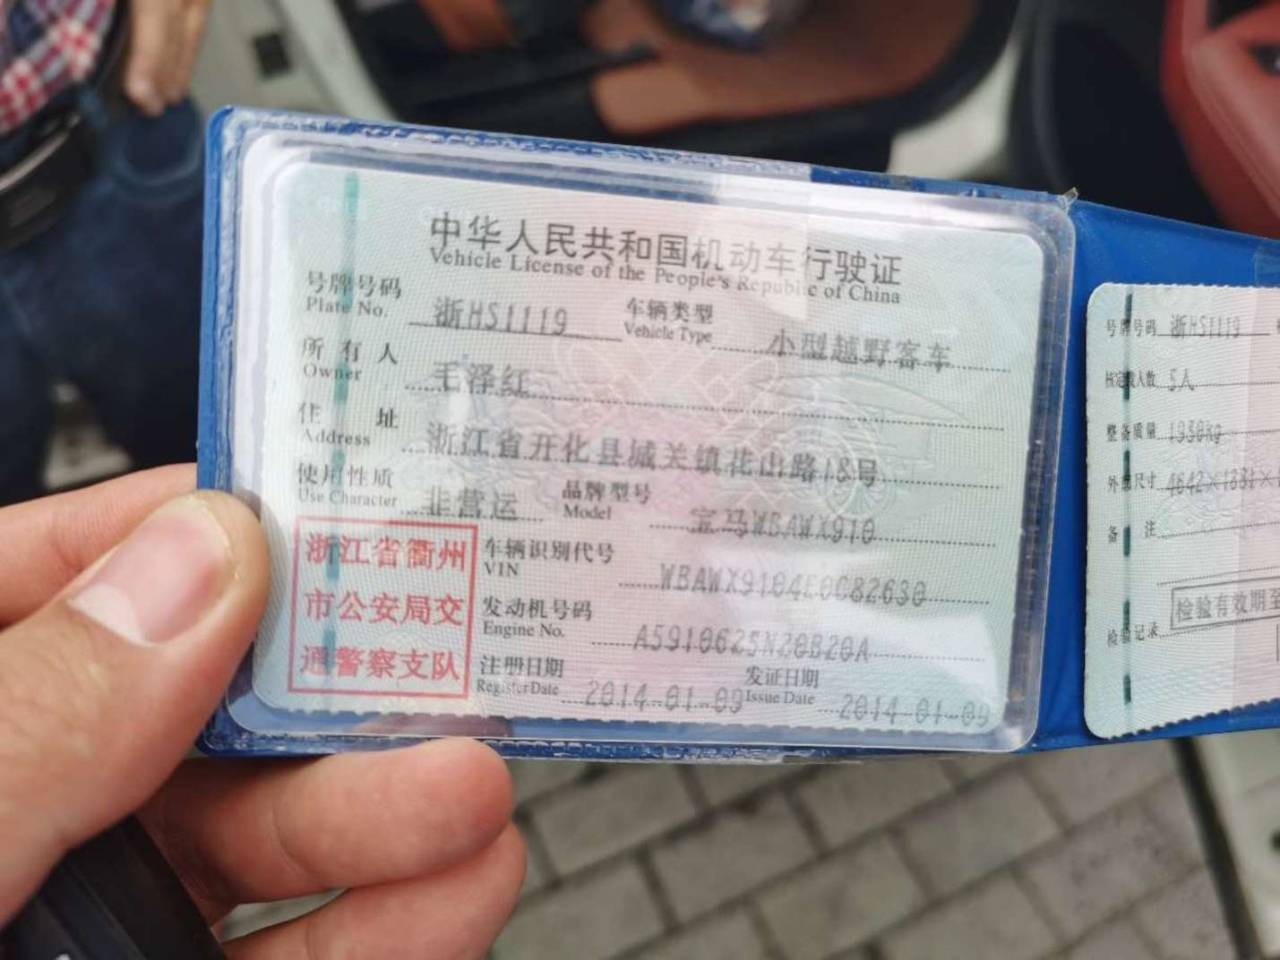 中华人民共和国机动车行驶证
Vehicle License of the People's Republic of China
号牌号码 浙HS1119 车辆类型 小型越野客车
Plate No. Vehicle Type
所有人 毛泽红
Owner
住址 浙江省开化县城关镇花山路18号
Address
使用性质 非营运 品牌型号 宝马WBAWX910
Use Character Model
浙江省衢州
市公安局交
通警察支队
车辆识别代号 WBAWX9104E0C82630
VIN
发动机号码 A5910625N20B20A
Engine No.
注册日期 2014-01-09 发证日期 2014-01-09
Register Date Issue Date
号牌号码 浙HS1119
核定载人数 5人
整备质量 1930kg
外廓尺寸 4642×1881×1
备注
检验有效期至
检验记录